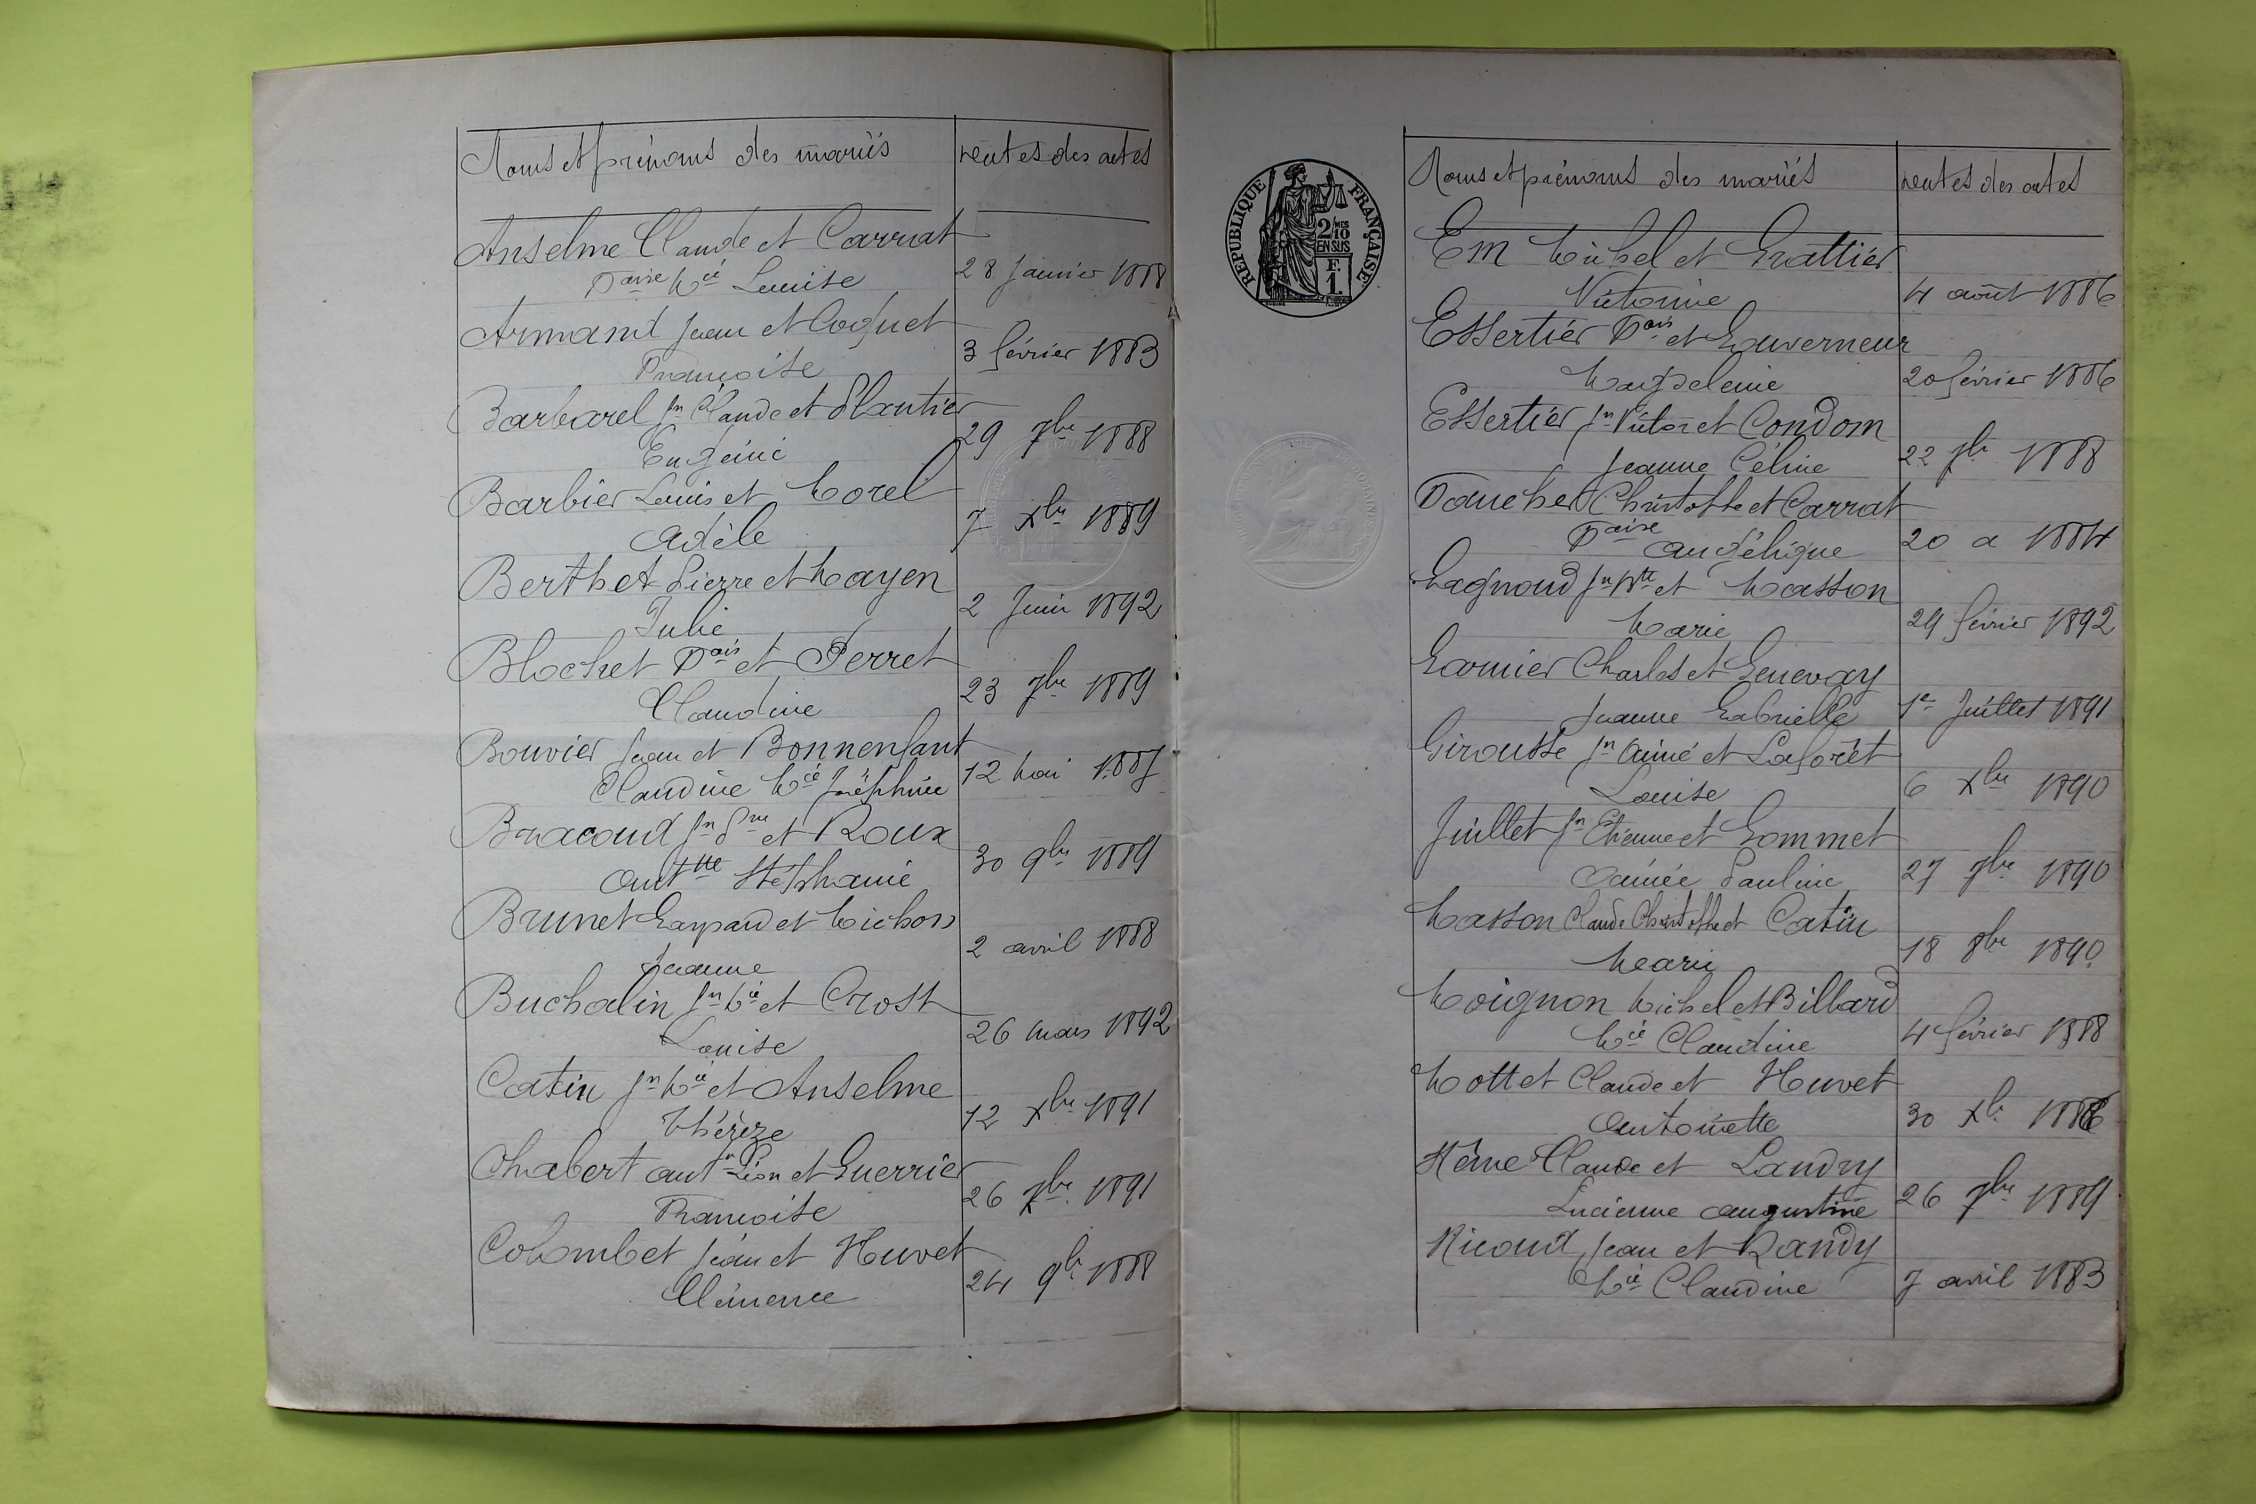 Noms et prénoms des mariés
Dates des actes
Anselme Claude et Carrat
Fçoise Mie Louise
28 Janvier 1888
Armand Jean et Coquet
Françoise
3 février 1883
Barbarel Jn Claude et Plantier
Eugénie
29 7bre 1888
Barbier Louis et Morel
Adèle
7 Xbre 1889
Berthet Pierre et Mayen
Julie
2 Juin 1892
Blochet Fçois et Perret
Claudine
23 9bre 1889
Bouvier Jean et Bonnenfant
Claudine Mie Joséphine
12 Mai 1887
Bracoud Jn Pre et Roux
Anttte Stéphanie
30 9bre 1889
Brunet Gaspard et Michon
Jeanne
2 avril 1888
Buchalin Jn Mie et Crost
Louise
26 Mars 1892
Catin Jn Mie et Anselme
Thérèze
12 Xbre 1891
Chabert Antne Léon et Guerrier
Françoise
26 7bre 1891
Colombet Jean et Huvet
Clémence
24 9bre 1888
RÉPUBLIQUE FRANÇAISE
2/10MES
EN SUS
F.
1.
Noms et prénoms des mariés
Dates des actes
Em Michel et Grattier
Victorine
4 août 1886
Essertier Fçois et Gouverneur
Magdeleine
20 février 1886
Essertier Jn Victor et Condom
Jeanne Céline
22 7bre 1888
Faucher Christophe et Carrat
Fçoise Angélique
20 a 1884
Gagnoud Jn Bte et Masson
Marie
29 février 1892
Garnier Charles et Genevay
Jeanne Gabrielle
1er Juillet 1891
Girousse Jn Aimé et Laforêt
Louise
6 Xbre 1890
Juillet Jn Etienne et Gommet
Aimée Pauline
27 7bre 1890
Masson Claude Christophe et Catin
Marie
18 8bre 1890
Moignon Michel et Billard
Mie Claudine
4 février 1888
Mottet Claude et Huvet
Antoinette
30 Xbre 1886
Nême Claude et Landry
Lucienne Augustine
26 7bre 1889
Nicoud Jean et Randy
Mie Claudine
7 avril 1883